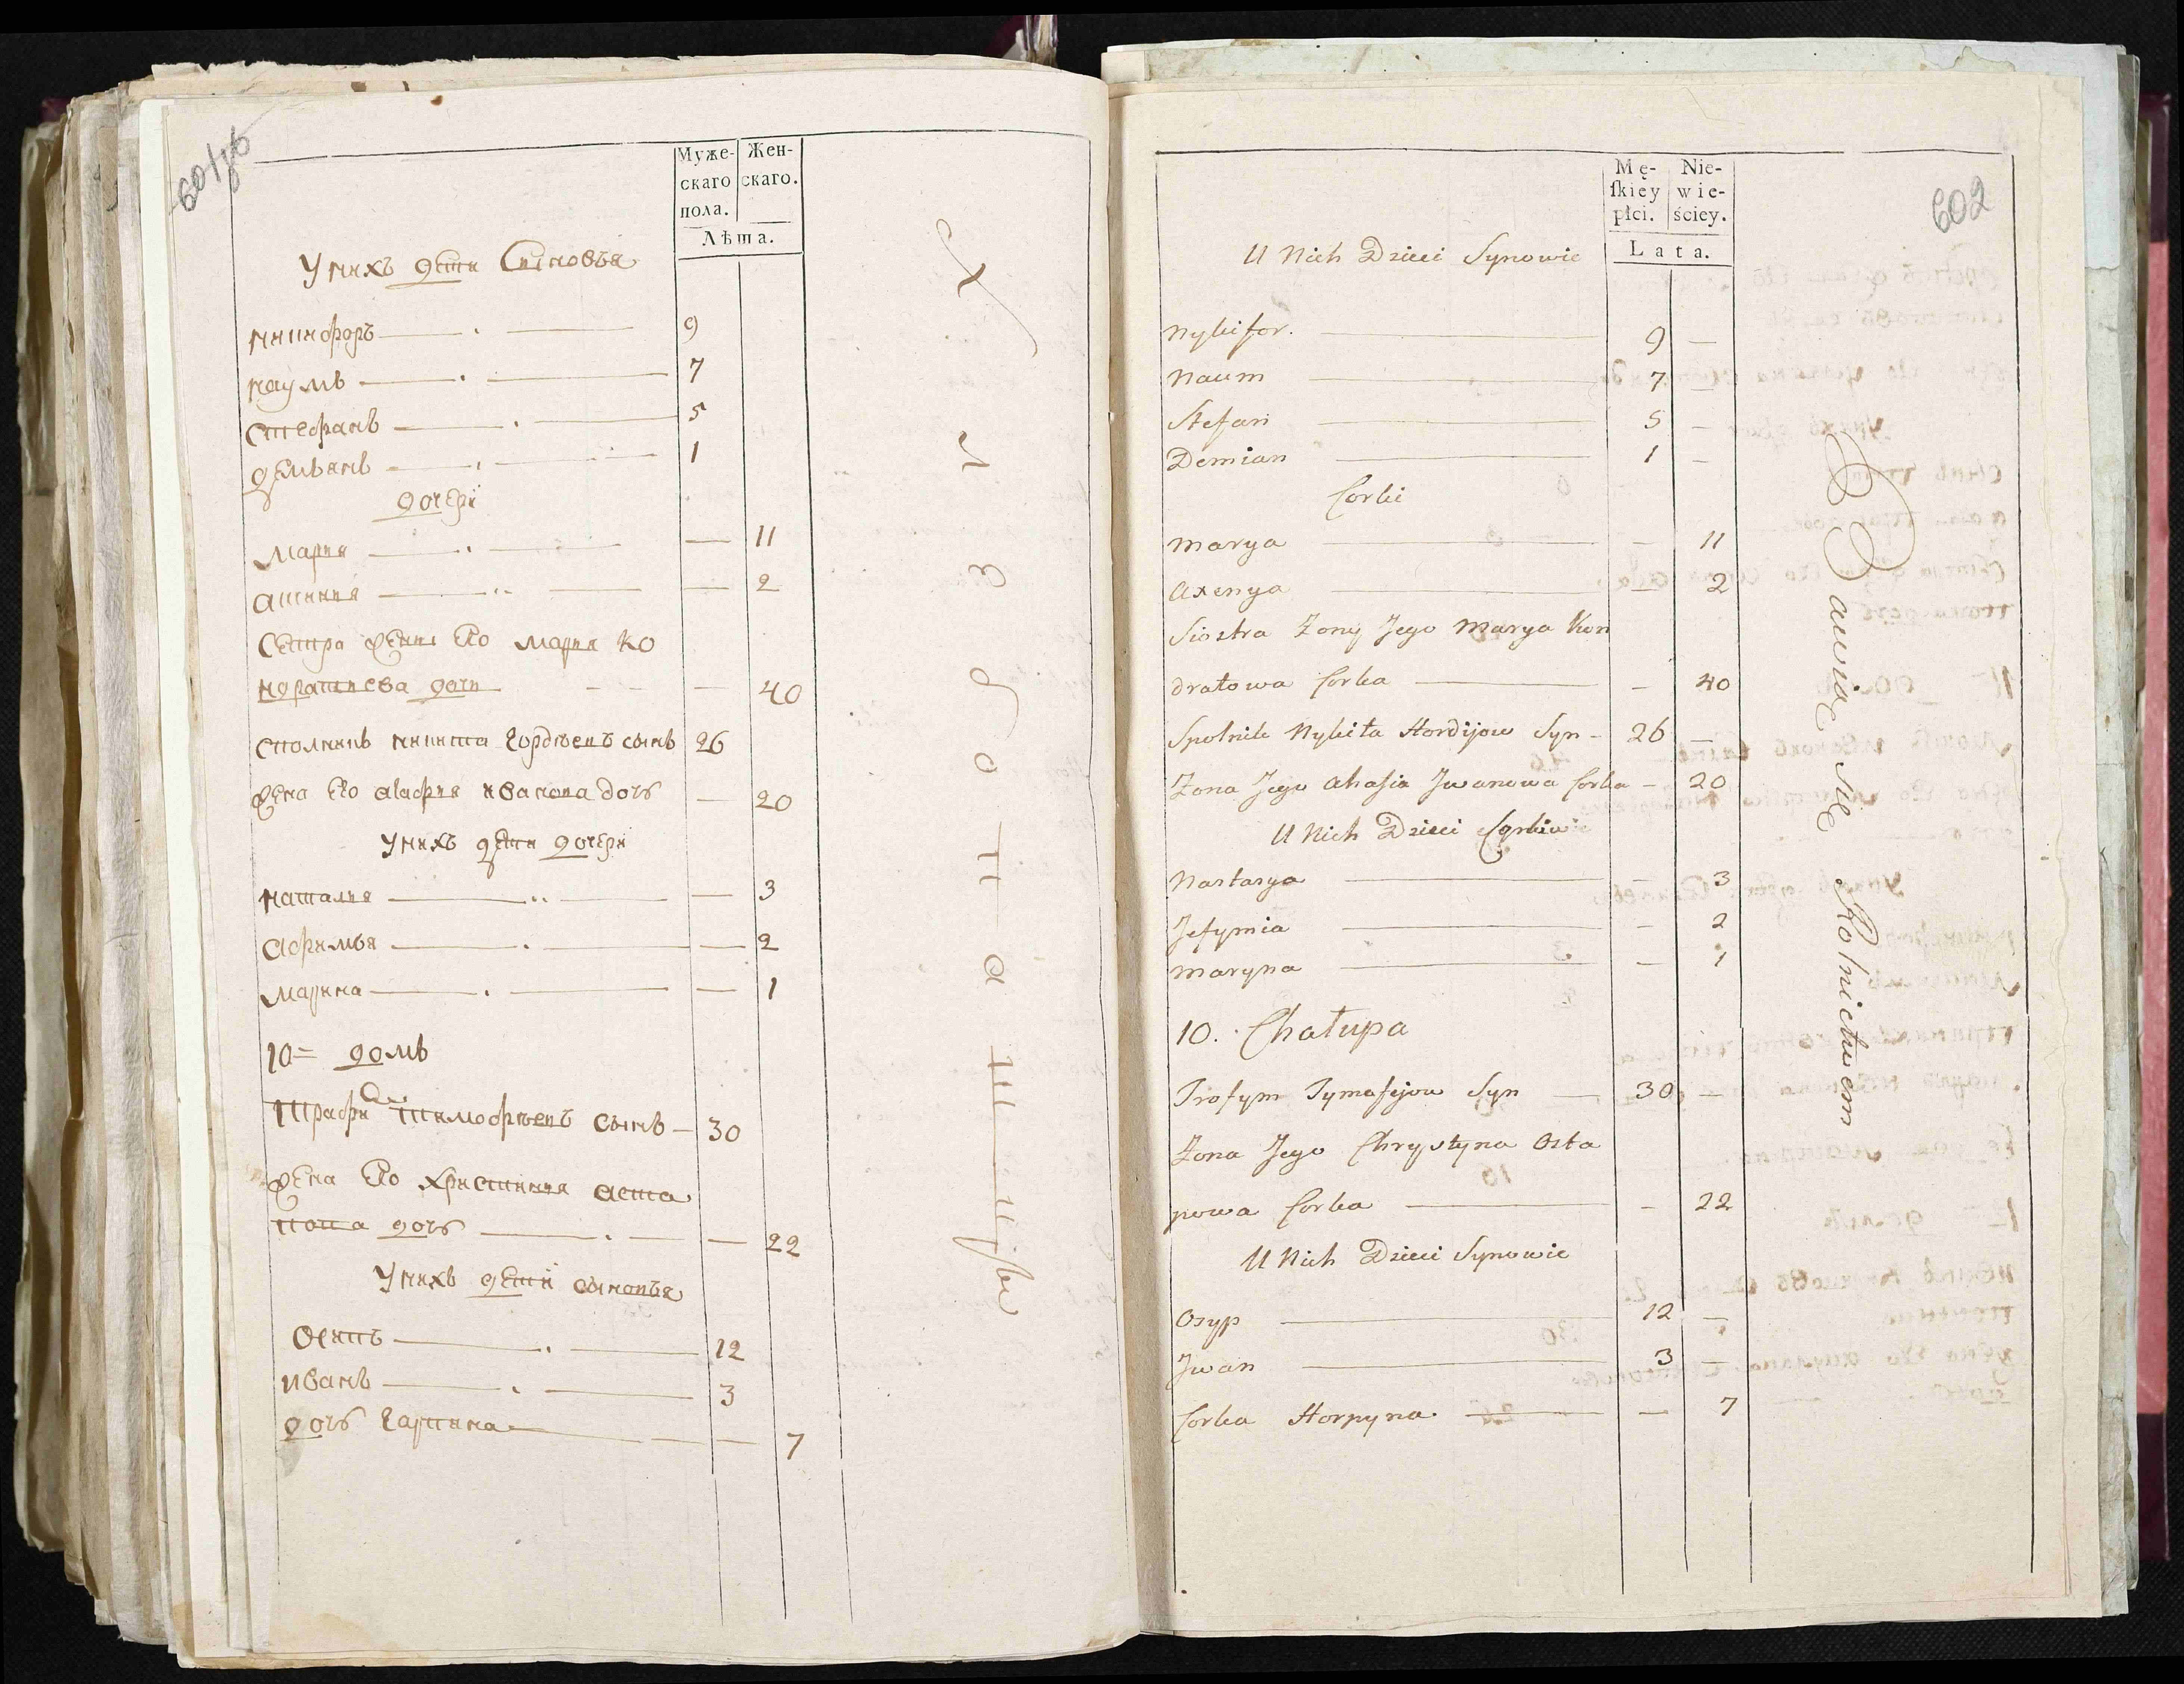 601об
Муже- Жен-
скаго скаго.
пола.
Лѣта.
У нихъ дети Сыновья
никифоръ 9
наумъ 7
стефанъ 5
демьянъ 1
дочери
мария — 11
аксиния — 2
Сестра жены Его мария ко
ндратиева дочь — 40
сполникъ никита гордѣевъ сынъ 26
жена Его агафия иванова дочь — 20
У нихъ дети дочери
наталия — 3
афимья — 2
марина — 1
10= домъ
трафи тимофѣевъ сынъ — 30
жена Его христиния аста
пова дочь — 22
У нихъ дети сыновья
Осипъ 12
иванъ 3
дочь гарпина — 7
602
Mę- Nie-
ſkiey wie-
płci. ściey.
Lata.
U Nich Dzieci Synowie
Nykifor. 9 —
Naum 7 —
Stefan 5 —
Demian 1 —
Corki
Marya — 11
Axenya — 2
Siostra Żony Jego Marya Kon
dratowa Corka — 40
Spolnik Nykita Hordijow Syn - 26 —
Żona Jego Ahafia Jwanowa Corka — 20
U Nich Dzieci Corki
Nastasya — 3
Jefymia — 2
Maryna — 1
10. Chałupa
Trofym Tymofijow Syn — 30 —
Żona Jego Chrystyna Osta
powa Corka — 22
U Nich Dzieci Synowie
Osyp 12 —
Jwan 3 —
Corka Horpyna — 7
Bawią się Rolnictwem